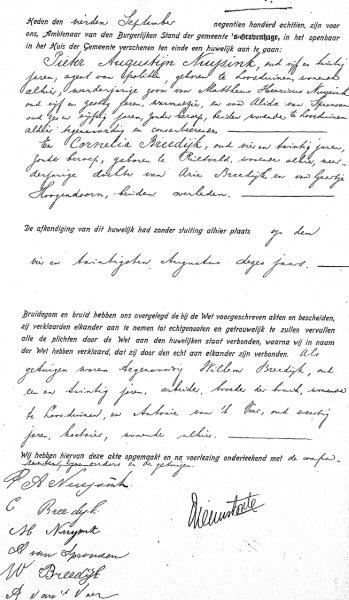 Heden den vierden September negentien honderd achttien, zijn voor
ons, Ambtenaar van den Burgerlijken Stand der gemeente 's-Gravenhage, in het openbaar
in het Huis der Gemeente verschenen ten einde een huwelijk aan te gaan:
Pieter Augustijn Nuijsink, oud vijf en twintig
jaren, agent van politie, geboren te Loosduinen, wonende
alhier, meerderjarige zoon van Mattheus Henricus Nuijsink
oud vijf en zestig jaren, en van Alida van Spronsen
oud zes en vijftig jaren, zonder beroep, beiden wonende te Loosduinen
alhier tegenwoordig en consenteerende.
En Cornelia Breedijk, oud vier en twintig jaren,
zonder beroep, geboren te Rietveld, wonende alhier, meer-
derjarige dochter van Arie Breedijk en van Geertje
Hoogendoorn, beiden overleden.
De afkondiging van dit huwelijk had zonder stuiting alhier plaats op den
vier en twintigsten Augustus dezes jaars.
Bruidegom en bruid hebben ons overgelegd de bij de Wet voorgeschreven akten en bescheiden,
zij verklaarden elkander aan te nemen tot echtgenooten en getrouwelijk te zullen vervullen
alle de plichten door de Wet aan den huwelijken staat verbonden, waarna wij in naam
der Wet hebben verklaard, dat zij door den echt aan elkander zijn verbonden. Als
getuigen waren tegenwoordig Willem Breedijk, oud
een en twintig jaren, arbeider, broeder der bruid, wonende
te Loosduinen, en Antonie van 't Veer, oud veertig
jaren, wonende alhier.
Wij hebben hiervan deze akte opgemaakt en na voorlezing onderteekend met de compa-
ranten, en de getuigen.
P A Nuijsink
C Breedijk
M Nuijsink
A van Spronsen
W Breedijk
A van 't Veer